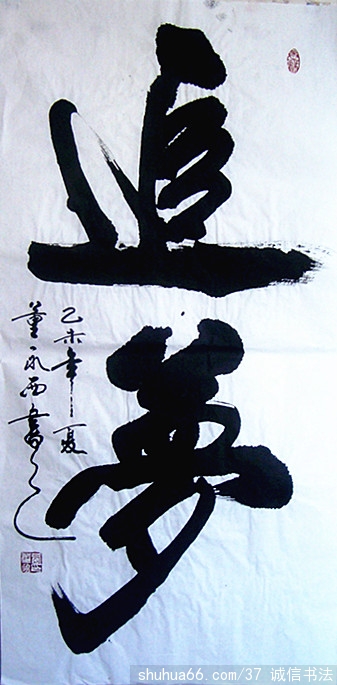 追夢
乙未年夏
董永西書之
shuhua66.com/37 诚信书法